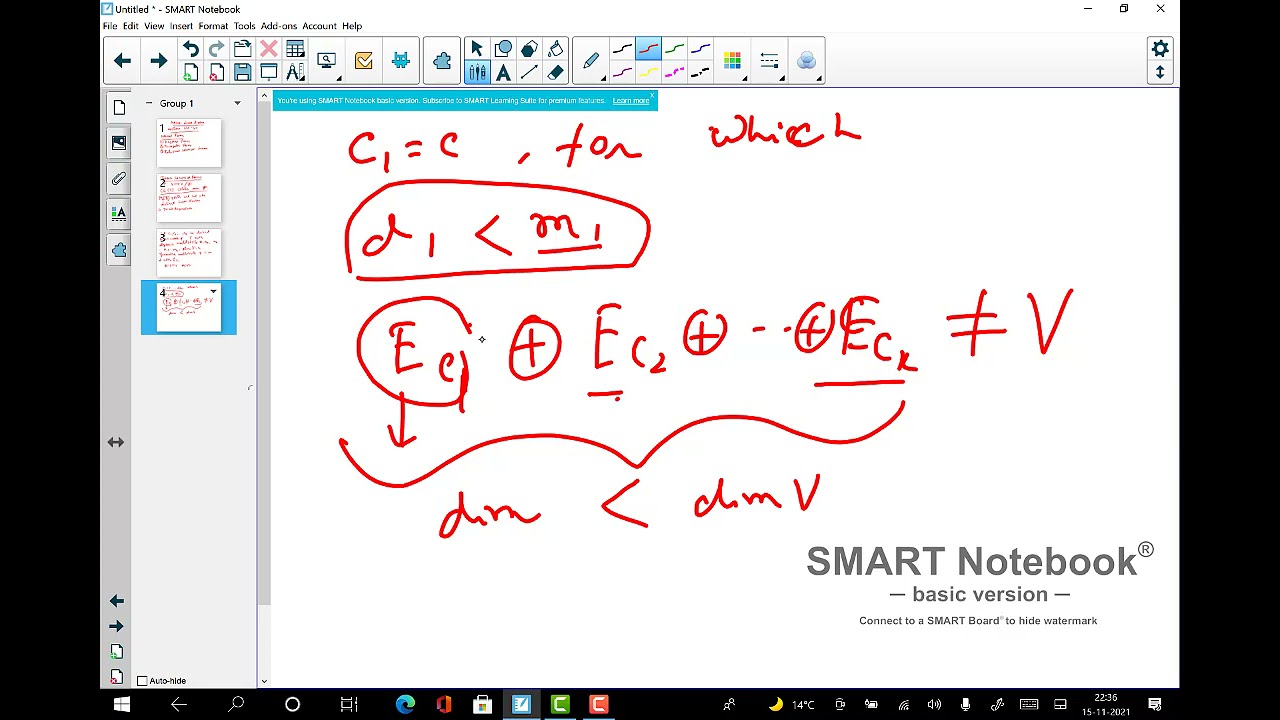 Untitled * - SMART Notebook
File Edit View Insert Format Tools Add-ons Account Help
Group 1
You're using SMART Notebook basic version. Subscribe to SMART Learning Suite for premium features. Learn more
C₁ = C , for which
d₁ < m₁
E_C₁ ⊕ E_C₂ ⊕ - - ⊕ E_Cₖ ≠ V
dim < dim V
SMART Notebook®
— basic version —
Connect to a SMART Board® to hide watermark
1
2
3
4
Auto-hide
14°C
22:36
15-11-2021